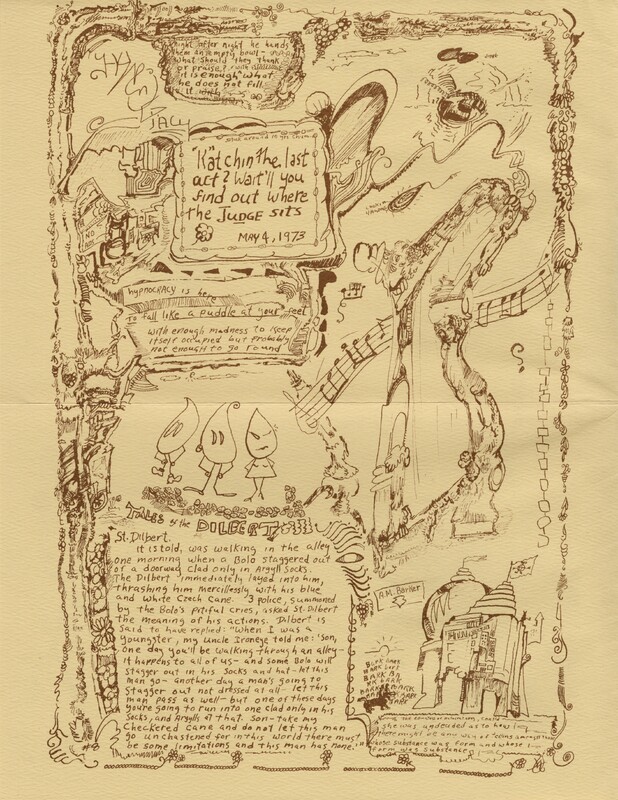 night after night he hands
them an empty bowl-
what should they thank
or praise?
it is enough what
he does not fill
it with
"Katchin the last
act? Wait'll you
find out where
the JUDGE sits
MAY 4, 1973
NO
hypnocracy is
to fall like a puddle at your feet
with enough madness to keep
itself occupied but probably
not enough to go round
TALES of the DILBERT
St. Dilbert.
It is told, was walking in the alley
one morning when a Bolo staggered out
of a doorway clad only in Argyll socks.
The Dilbert immediately layed into him,
thrashing him mercilessly with his blue
and white Czech Cane. 3 Police, summoned
by the Bolo's pitiful cries, asked St. Dilbert
the meaning of his actions. Dilbert is
said to have replied: "When I was a
youngster, my Uncle Ironeye told me: 'Son,
one day you'll be walking through an alley-
it happens to all of us - and some Bolo will
stagger out in his socks and hat - let this
man go - another day a man's going to
stagger out not dressed at all - let this
man pass as well - but one of these days
you're going to run into one clad only in his
socks, and Argylls at that. Son - take my
checkered cane and do not let this man
go unchastened for in this world there must
be some limitations and this man has none.'"
A.M. Barker
BARK BARK
BARK BARK
she was undecided as to how
there might be
whose substance was form and whose
form was substance